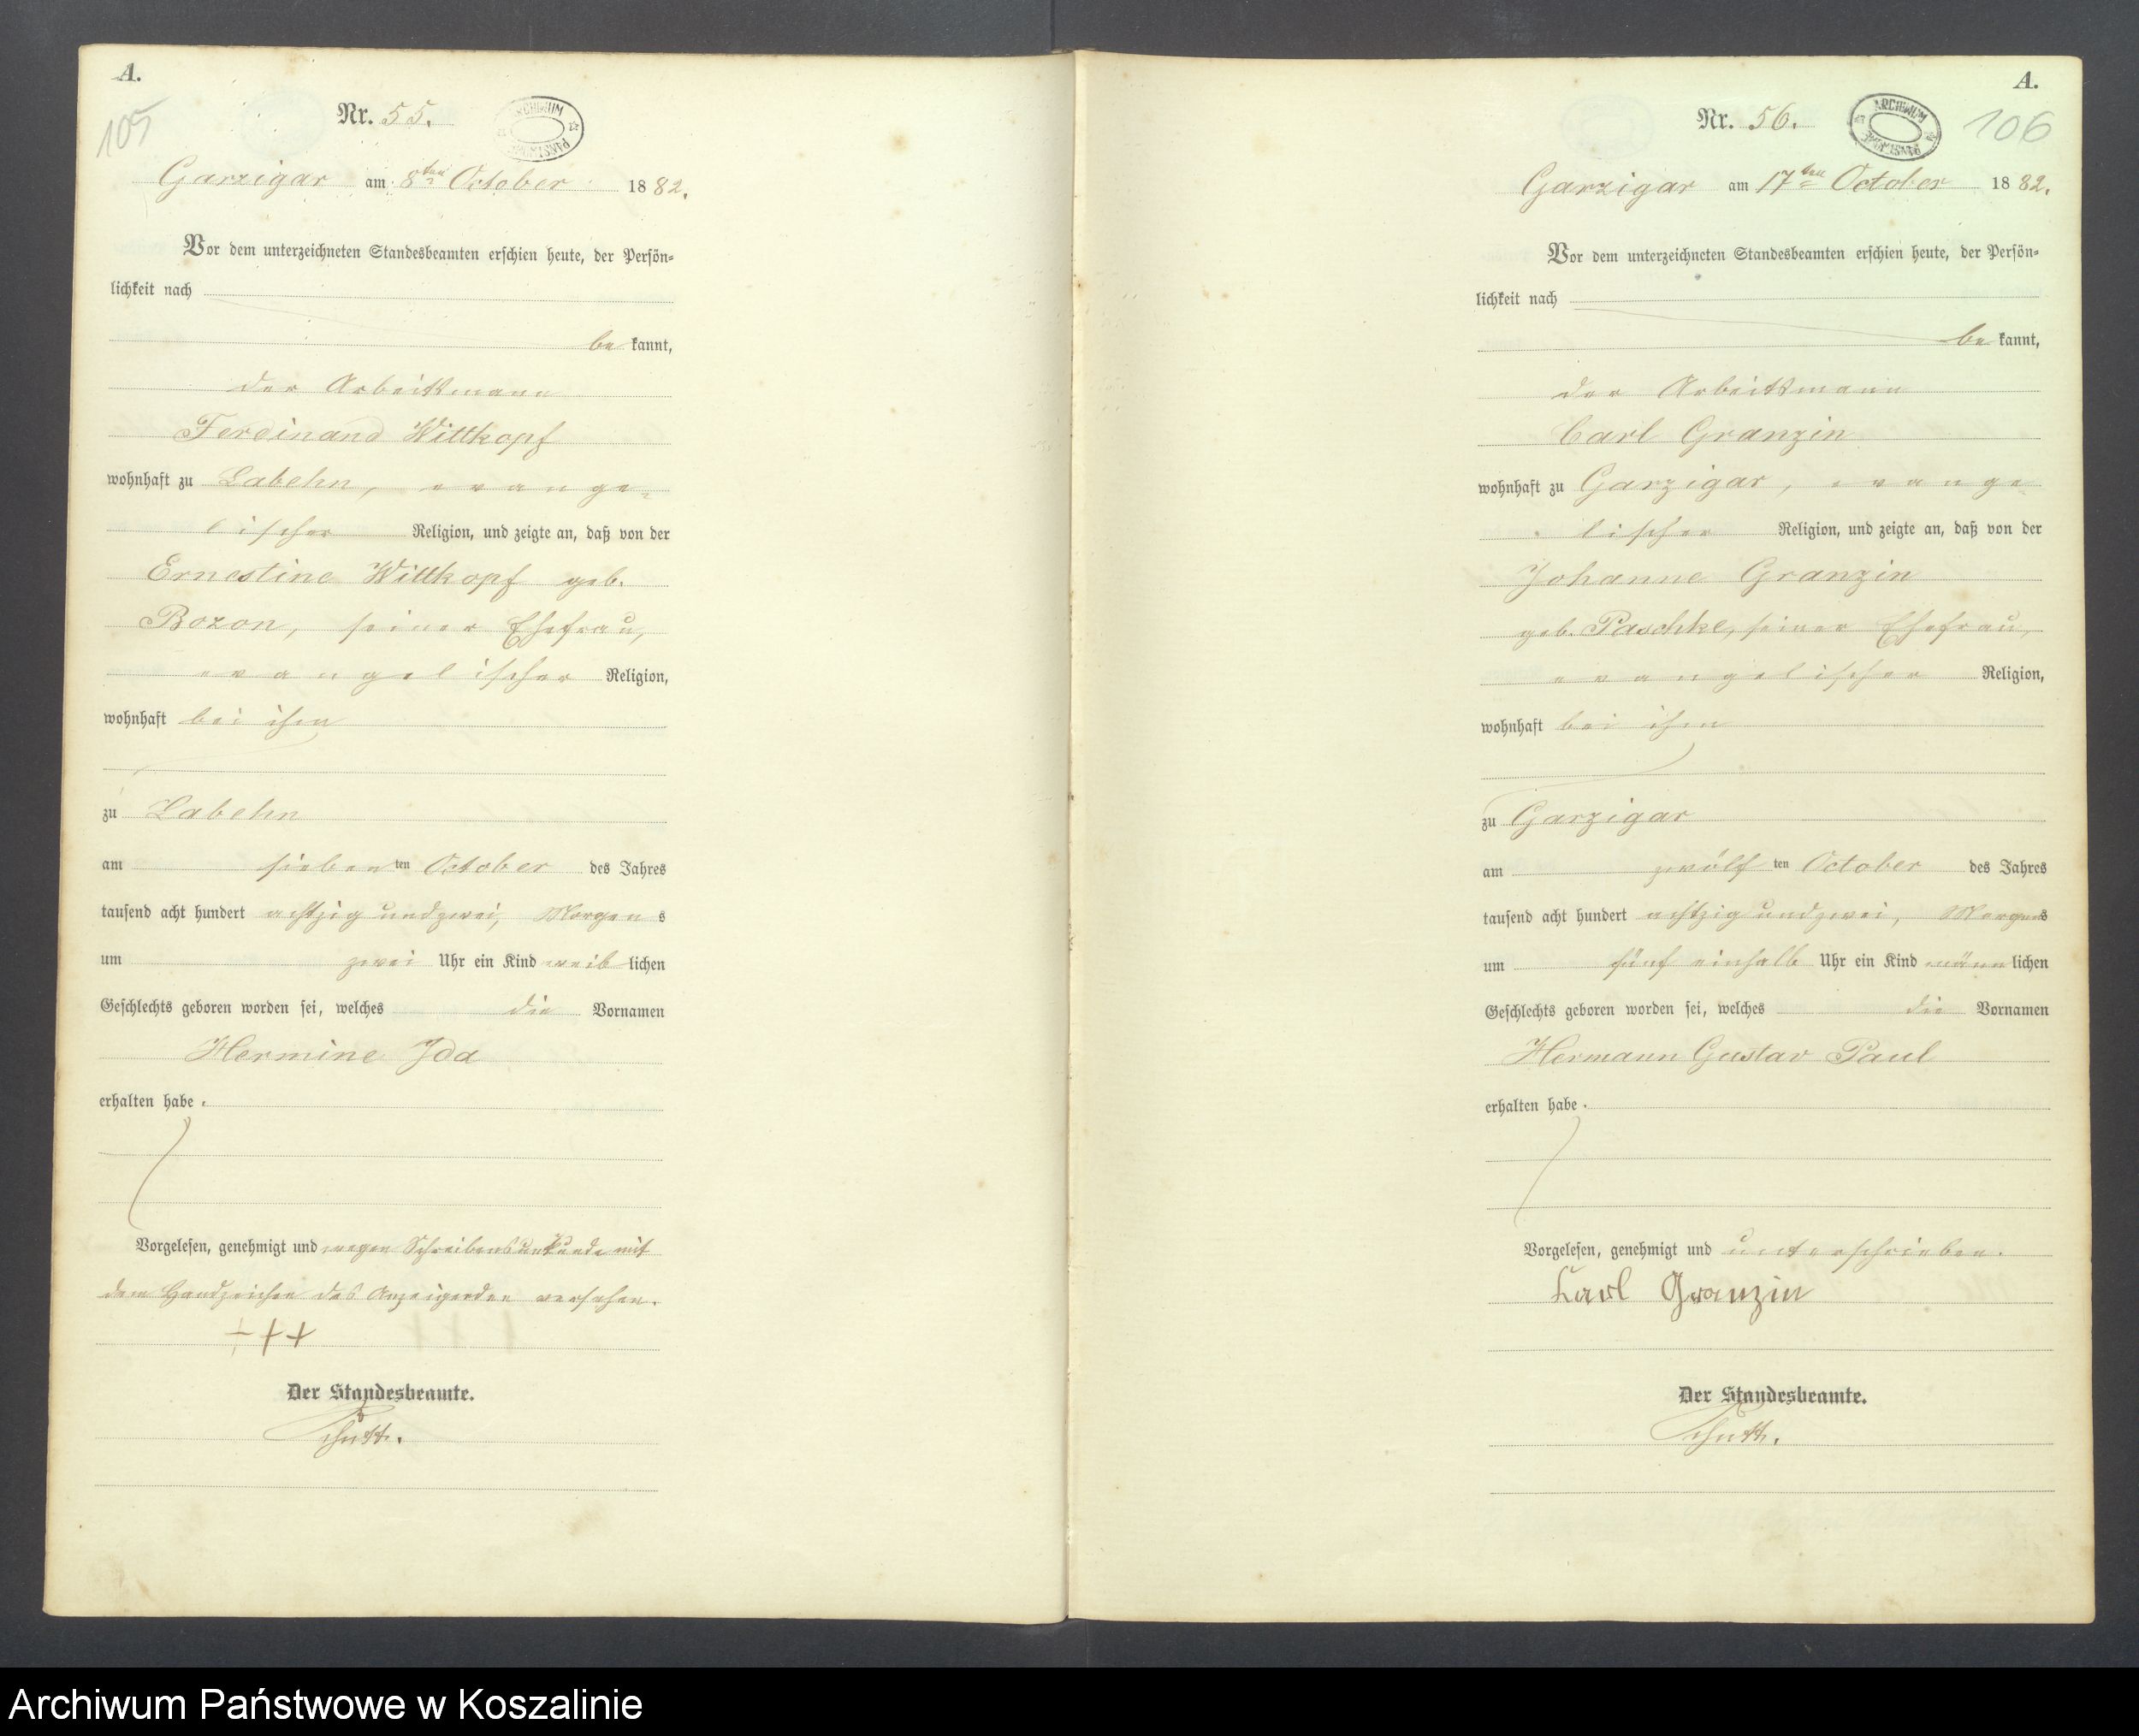 A.
105
Nr. 55.
ARCHIWUM PAŃSTWOWE
Garzigar am 8ten October 1882.
Vor dem unterzeichneten Standesbeamten erschien heute, der Persön-
lichkeit nach
be kannt,
der Arbeitsmann
Ferdinand Wittkopf
wohnhaft zu Labehn, evange-
lischer Religion, und zeigte an, daß von der
Ernestine Wittkopf geb.
Bozon, seiner Ehefrau,
evangelischer Religion,
wohnhaft bei ihm
zu Labehn
am sieben ten October des Jahres
tausend acht hundert achtzig und zwei, Morgen s
um zwei Uhr ein Kind weib lichen
Geschlechts geboren worden sei, welches die Vornamen
Hermine Ida
erhalten habe.
Vorgelesen, genehmigt und wegen Schreibensunkunde mit
dem Handzeichen des Anzeigenden versehen.
+++
Der Standesbeamte.
A.
Nr. 56.
ARCHIWUM PAŃSTWOWE
106
Garzigar am 17ten October 1882.
Vor dem unterzeichneten Standesbeamten erschien heute, der Persön-
lichkeit nach
be kannt,
der Arbeitsmann
Carl Granzin
wohnhaft zu Garzigar, evange-
lischer Religion, und zeigte an, daß von der
Johanne Granzin
geb. Paschke, seiner Ehefrau,
evangelischer Religion,
wohnhaft bei ihm
zu Garzigar
am zwölf ten October des Jahres
tausend acht hundert achtzig und zwei, Morgens
um fünf einhalb Uhr ein Kind männ lichen
Geschlechts geboren worden sei, welches die Vornamen
Hermann Gustav Paul
erhalten habe.
Vorgelesen, genehmigt und unterschrieben.
Karl Granzin
Der Standesbeamte.
Archiwum Państwowe w Koszalinie